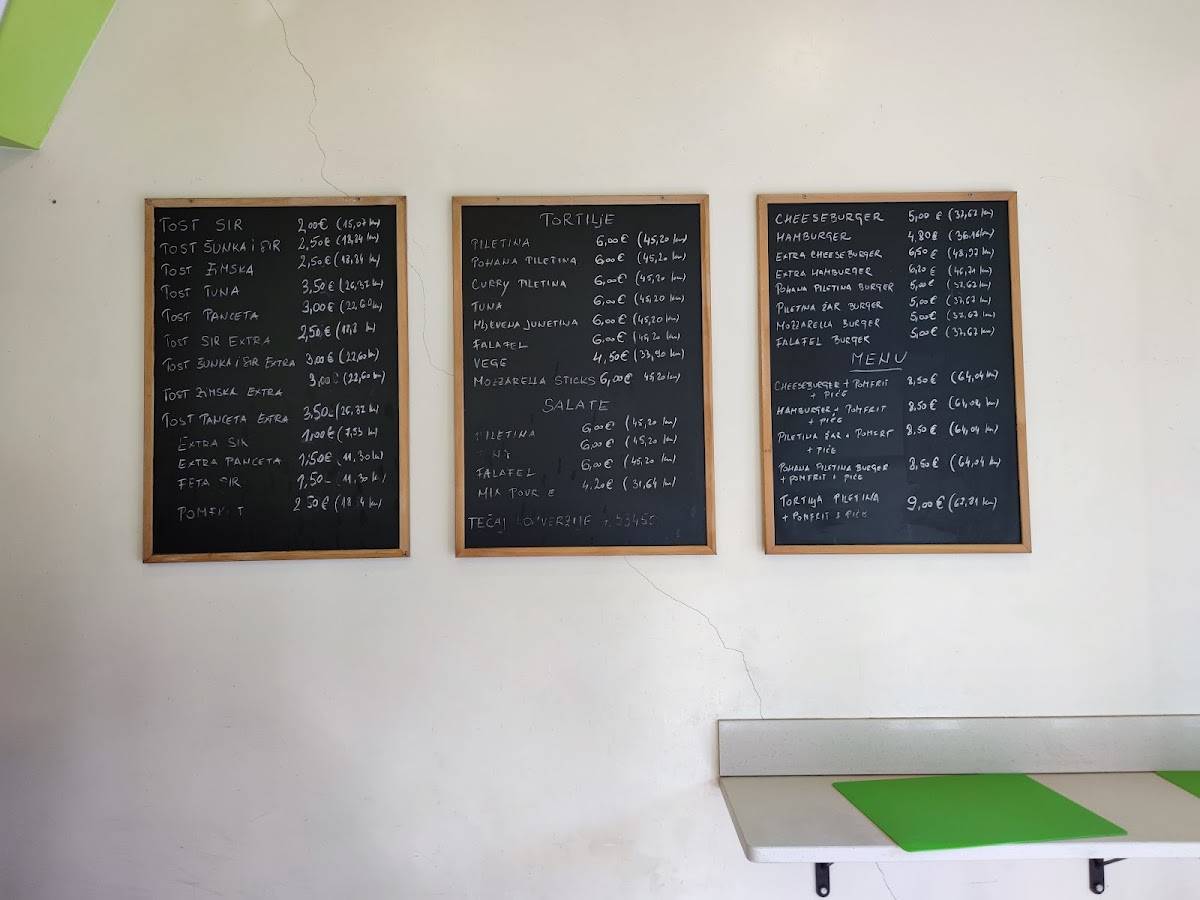 TOST SIR 2,00€ (15,07 kn)
TOST ŠUNKA i SIR 2,50€ (18,84 kn)
TOST ZIMSKA 2,50€ (18,84 kn)
TOST TUNA 3,50€ (26,37 kn)
TOST PANCETA 3,00€ (22,60 kn)
TOST SIR EXTRA 2,50€ (18,8 kn)
TOST ŠUNKA i SIR EXTRA 3,00€ (22,60 kn)
TOST ZIMSKA EXTRA 3,00€ (22,60 kn)
TOST PANCETA EXTRA 3,50 (26,37 kn)
EXTRA SIR 1,00€ (7,53 kn)
EXTRA PANCETA 1,50€ (11,30 kn)
FETA SIR 1,50 (11,30 kn)
POMFRIT 2,50€
TORTILJE
PILETINA 6,00€ (45,20 kn)
POHANA PILETINA 6,00€ (45,20 kn)
CURRY PILETINA 6,00€ (45,20 kn)
TUNA 6,00€ (45,20 kn)
MLJEVENA JUNETINA 6,00€ (45,20 kn)
FALAFEL 6,00€ (45,20 kn)
VEGE 4,50€ (33,90 kn)
MOZZARELLA STICKS 6,00€ 45,20 kn)
SALATE
PILETINA 6,00€ (45,20 kn)
6,00€ (45,20 kn)
FALAFEL 6,00€ (45,20 kn)
MIX 4,20€ (31,64 kn)
TEČAJ
CHEESEBURGER 5,00€ (37,67 kn)
HAMBURGER 4,80€ (36,16 kn)
EXTRA CHEESEBURGER 6,50€ (48,97 kn)
EXTRA HAMBURGER 6,20€ (46,71 kn)
POHANA PILETINA BURGER 5,00€ (37,67 kn)
PILETINA ŽAR BURGER 5,00€ (37,67 kn)
MOZZARELLA BURGER 5,00€ (37,67 kn)
FALAFEL BURGER 5,00€ (37,67 kn)
MENU
CHEESEBURGER + POMFRIT 8,50€ (64,04 kn)
+ PIĆE
HAMBURGER + POMFRIT 8,50€ (64,04 kn)
+ PIĆE
PILETINA ŽAR + POMFRIT 8,50€ (64,04 kn)
+ PIĆE
POHANA PILETINA BURGER 8,50€ (64,04 kn)
+ POMFRIT + PIĆE
TORTILJA PILETINA 9,00€ (67,81 kn)
+ POMFRIT + PIĆE